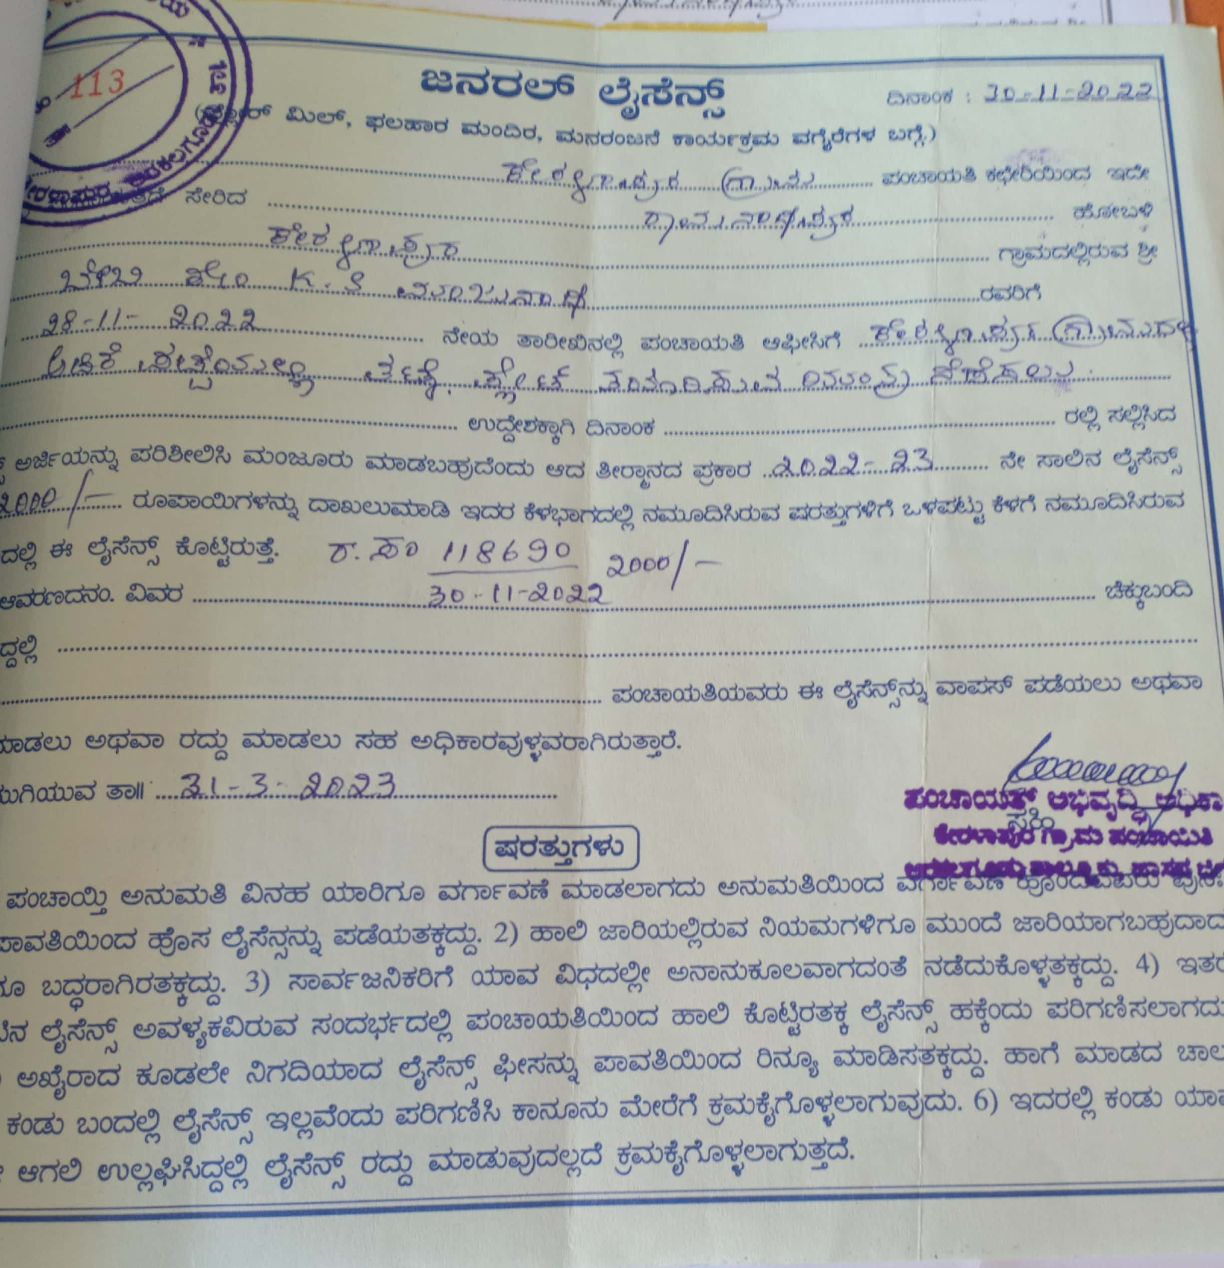 113
ಜನರಲ್ ಲೈಸೆನ್ಸ್
ದಿನಾಂಕ : 30-11-2022
ಮಿಲ್, ಫಲಹಾರ ಮಂದಿರ, ಮನರಂಜನೆ ಕಾರ್ಯಕ್ರಮ ವಗೈರೆಗಳ ಬಗ್ಗೆ.)
ಕೇರಳಾಪುರ ಗ್ರಾಮ ಪಂಚಾಯತಿ ಕಛೇರಿಯಿಂದ ಇದೇ
ಸೇರಿದ ರಾಮನಾಥಪುರ ಹೋಬಳಿ
ಕೇರಳಾಪುರ ಗ್ರಾಮದಲ್ಲಿರುವ ಶ್ರೀ
K.S ಮಂಜುನಾಥ ರವರಿಗೆ
28-11-2022 ನೇಯ ತಾರೀಖಿನಲ್ಲಿ ಪಂಚಾಯತಿ ಆಫೀಸಿಗೆ ಕೇರಳಾಪುರ ಗ್ರಾಮದಲ್ಲಿ
ಅಡಿಕೆ ತಟ್ಟೆ ಪ್ಲೇಟ್
ಉದ್ದೇಶಕ್ಕಾಗಿ ದಿನಾಂಕ ರಲ್ಲಿ ಸಲ್ಲಿಸಿದ
ಅರ್ಜಿಯನ್ನು ಪರಿಶೀಲಿಸಿ ಮಂಜೂರು ಮಾಡಬಹುದೆಂದು ಆದ ತೀರ್ಮಾನದ ಪ್ರಕಾರ 2022-23 ನೇ ಸಾಲಿನ ಲೈಸೆನ್ಸ್
2000/- ರೂಪಾಯಿಗಳನ್ನು ದಾಖಲುಮಾಡಿ ಇದರ ಕೆಳಭಾಗದಲ್ಲಿ ನಮೂದಿಸಿರುವ ಷರತ್ತುಗಳಿಗೆ ಒಳಪಟ್ಟು ಕೆಳಗೆ ನಮೂದಿಸಿರುವ
ದಲ್ಲಿ ಈ ಲೈಸೆನ್ಸ್ ಕೊಟ್ಟಿರುತ್ತೆ. ರ.ಸಂ 118690 2000/-
ಆವರಣದನಂ. ವಿವರ 30-11-2022 ಚೆಕ್ಕುಬಂದಿ
ದ್ದಲ್ಲಿ
ಪಂಚಾಯತಿಯವರು ಈ ಲೈಸೆನ್ಸ್‌ನ್ನು ವಾಪಸ್ ಪಡೆಯಲು ಅಥವಾ
ಮಾಡಲು ಅಥವಾ ರದ್ದು ಮಾಡಲು ಸಹ ಅಧಿಕಾರವುಳ್ಳವರಾಗಿರುತ್ತಾರೆ.
ಮುಗಿಯುವ ತಾ॥ 31-3-2023
ಸಹಿ
ಪಂಚಾಯತ್ ಅಭಿವೃದ್ಧಿ ಅಧಿಕಾ
ಕೇರಳಾಪುರ ಗ್ರಾಮ ಪಂಚಾಯಿತಿ
ಷರತ್ತುಗಳು
ಪಂಚಾಯ್ತಿ ಅನುಮತಿ ವಿನಹ ಯಾರಿಗೂ ವರ್ಗಾವಣೆ ಮಾಡಲಾಗದು ಅನುಮತಿಯಿಂದ ವರ್ಗಾವಣೆ ಹೊಂದಿದವರು ಪುನಃ
ಪಾವತಿಯಿಂದ ಹೊಸ ಲೈಸೆನ್ಸನ್ನು ಪಡೆಯತಕ್ಕದ್ದು. 2) ಹಾಲಿ ಜಾರಿಯಲ್ಲಿರುವ ನಿಯಮಗಳಿಗೂ ಮುಂದೆ ಜಾರಿಯಾಗಬಹುದಾದ
ಬದ್ಧರಾಗಿರತಕ್ಕದ್ದು. 3) ಸಾರ್ವಜನಿಕರಿಗೆ ಯಾವ ವಿಧದಲ್ಲೀ ಅನಾನುಕೂಲವಾಗದಂತೆ ನಡೆದುಕೊಳ್ಳತಕ್ಕದ್ದು. 4) ಇತರ
ಲೈಸೆನ್ಸ್ ಅವಳ್ಯಕವಿರುವ ಸಂದರ್ಭದಲ್ಲಿ ಪಂಚಾಯತಿಯಿಂದ ಹಾಲಿ ಕೊಟ್ಟಿರತಕ್ಕ ಲೈಸೆನ್ಸ್ ಹಕ್ಕೆಂದು ಪರಿಗಣಿಸಲಾಗದು
ಅಖೈರಾದ ಕೂಡಲೇ ನಿಗದಿಯಾದ ಲೈಸೆನ್ಸ್ ಫೀಸನ್ನು ಪಾವತಿಯಿಂದ ರಿನ್ಯೂ ಮಾಡಿಸತಕ್ಕದ್ದು. ಹಾಗೆ ಮಾಡದ ಚಾಲ
ಕಂಡು ಬಂದಲ್ಲಿ ಲೈಸೆನ್ಸ್ ಇಲ್ಲವೆಂದು ಪರಿಗಣಿಸಿ ಕಾನೂನು ಮೇರೆಗೆ ಕ್ರಮಕೈಗೊಳ್ಳಲಾಗುವುದು. 6) ಇದರಲ್ಲಿ ಕಂಡು ಯಾವ
ಆಗಲಿ ಉಲ್ಲಘಿಸಿದ್ದಲ್ಲಿ ಲೈಸೆನ್ಸ್ ರದ್ದು ಮಾಡುವುದಲ್ಲದೆ ಕ್ರಮಕೈಗೊಳ್ಳಲಾಗುತ್ತದೆ.